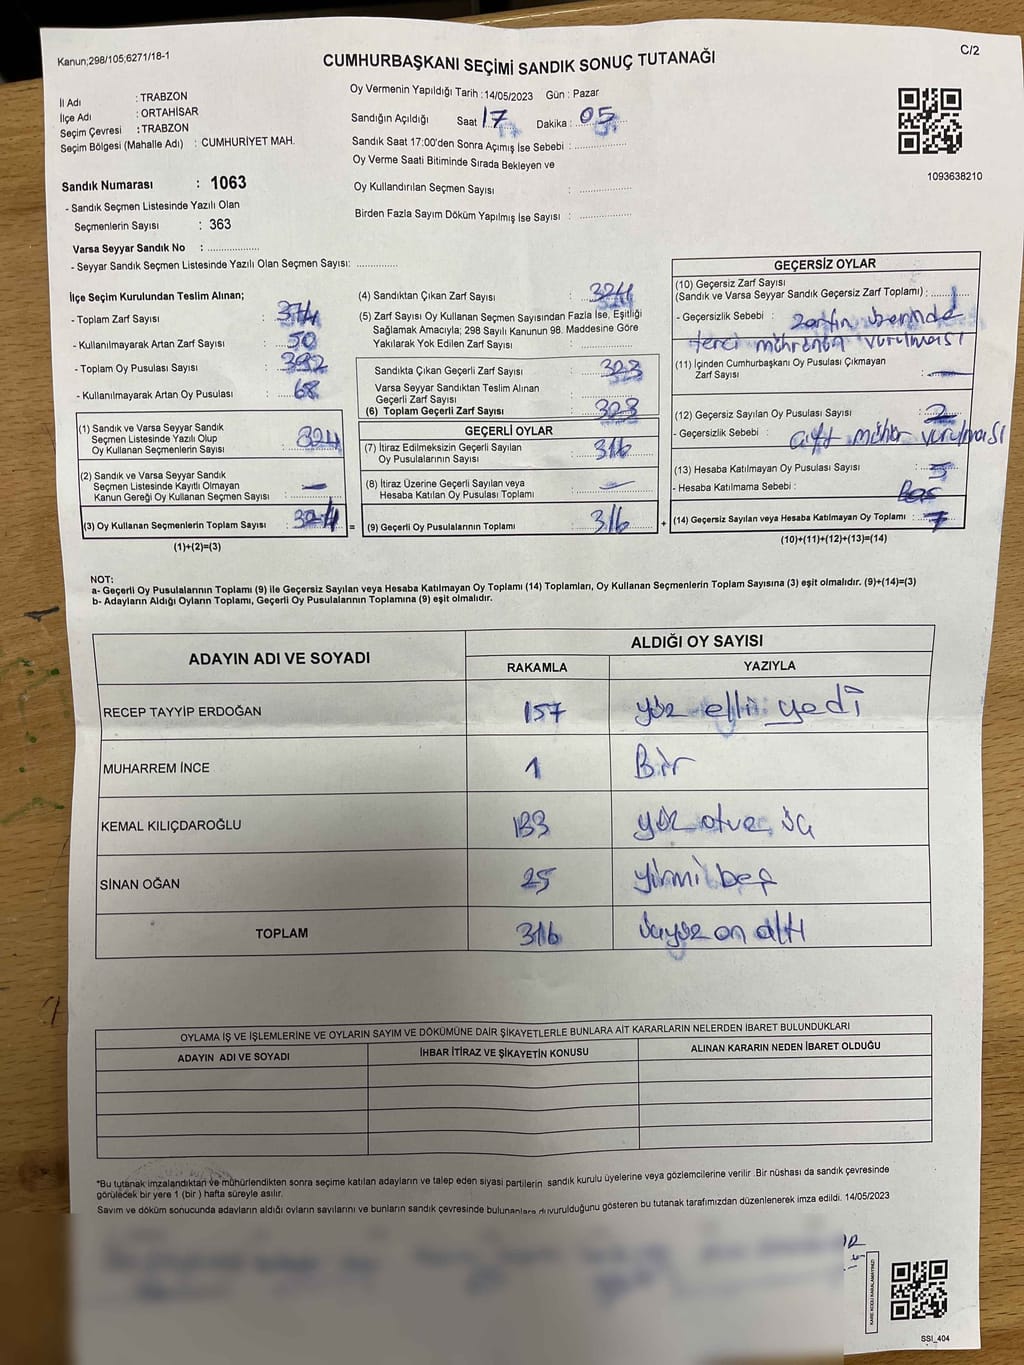 Kanun;298/105;6271/18-1
CUMHURBAŞKANI SEÇİMİ SANDIK SONUÇ TUTANAĞI
C/2
İl Adı : TRABZON
İlçe Adı : ORTAHİSAR
Seçim Çevresi : TRABZON
Seçim Bölgesi (Mahalle Adı) : CUMHURİYET MAH.
Sandık Numarası : 1063
- Sandık Seçmen Listesinde Yazılı Olan
Seçmenlerin Sayısı : 363
Varsa Seyyar Sandık No : ..................
- Seyyar Sandık Seçmen Listesinde Yazılı Olan Seçmen Sayısı: ..............
Oy Vermenin Yapıldığı Tarih :14/05/2023 Gün : Pazar
Sandığın Açıldığı Saat 17 Dakika : 05
Sandık Saat 17:00'den Sonra Açımış İse Sebebi : ..................
Oy Verme Saati Bitiminde Sırada Bekleyen ve
Oy Kullandırılan Seçmen Sayısı : ..................
Birden Fazla Sayım Döküm Yapılmış İse Sayısı : ..................
1093638210
İlçe Seçim Kurulundan Teslim Alınan;
- Toplam Zarf Sayısı : 374
- Kullanılmayarak Artan Zarf Sayısı : 50
- Toplam Oy Pusulası Sayısı : 392
- Kullanılmayarak Artan Oy Pusulası : 68
(1) Sandık ve Varsa Seyyar Sandık
Seçmen Listesinde Yazılı Olup
Oy Kullanan Seçmenlerin Sayısı : 324
(2) Sandık ve Varsa Seyyar Sandık
Seçmen Listesinde Kayıtlı Olmayan
Kanun Gereği Oy Kullanan Seçmen Sayısı : —
(3) Oy Kullanan Seçmenlerin Toplam Sayısı : 324 =
(1)+(2)=(3)
(4) Sandıktan Çıkan Zarf Sayısı : 324
(5) Zarf Sayısı Oy Kullanan Seçmen Sayısından Fazla İse, Eşitliği
Sağlamak Amacıyla; 298 Sayılı Kanunun 98. Maddesine Göre
Yakılarak Yok Edilen Zarf Sayısı : ..................
Sandıkta Çıkan Geçerli Zarf Sayısı : 323
Varsa Seyyar Sandıktan Teslim Alınan
Geçerli Zarf Sayısı : ..................
(6) Toplam Geçerli Zarf Sayısı : 323
GEÇERLİ OYLAR
(7) İtiraz Edilmeksizin Geçerli Sayılan
Oy Pusulalarının Sayısı : 316
(8) İtiraz Üzerine Geçerli Sayılan veya
Hesaba Katılan Oy Pusulası Toplamı : —
(9) Geçerli Oy Pusulalarının Toplamı : 316 +
GEÇERSİZ OYLAR
(10) Geçersiz Zarf Sayısı
(Sandık ve Varsa Seyyar Sandık Geçersiz Zarf Toplamı) : 1
- Geçersizlik Sebebi : zarfın üzerinde
terci mührenün vurulması
(11) İçinden Cumhurbaşkanı Oy Pusulası Çıkmayan
Zarf Sayısı : —
(12) Geçersiz Sayılan Oy Pusulası Sayısı : 2
- Geçersizlik Sebebi : çift mühür vurulması
(13) Hesaba Katılmayan Oy Pusulası Sayısı :
- Hesaba Katılmama Sebebi : Boş
(14) Geçersiz Sayılan veya Hesaba Katılmayan Oy Toplamı : 7
(10)+(11)+(12)+(13)=(14)
NOT:
a- Geçerli Oy Pusulalarının Toplamı (9) ile Geçersiz Sayılan veya Hesaba Katılmayan Oy Toplamı (14) Toplamları, Oy Kullanan Seçmenlerin Toplam Sayısına (3) eşit olmalıdır. (9)+(14)=(3)
b- Adayların Aldığı Oyların Toplamı, Geçerli Oy Pusulalarının Toplamına (9) eşit olmalıdır.
ADAYIN ADI VE SOYADI
ALDIĞI OY SAYISI
RAKAMLA YAZIYLA
RECEP TAYYİP ERDOĞAN 157 yüz elli yedi
MUHARREM İNCE 1 Bir
KEMAL KILIÇDAROĞLU 133 yüz otuz üç
SİNAN OĞAN 25 yirmi beş
TOPLAM 316 üçyüz on altı
OYLAMA İŞ VE İŞLEMLERİNE VE OYLARIN SAYIM VE DÖKÜMÜNE DAİR ŞİKAYETLERLE BUNLARA AİT KARARLARIN NELERDEN İBARET BULUNDUKLARI
ADAYIN ADI VE SOYADI İHBAR İTİRAZ VE ŞİKAYETİN KONUSU ALINAN KARARIN NEDEN İBARET OLDUĞU
*Bu tutanak imzalandıktan ve mühürlendikten sonra seçime katılan adayların ve talep eden siyasi partilerin sandık kurulu üyelerine veya gözlemcilerine verilir .Bir nüshası da sandık çevresinde
görülecek bir yere 1 (bir ) hafta süreyle asılır.
Sayım ve döküm sonucunda adayların aldığı oyların sayılarını ve bunların sandık çevresinde bulunanlara duyurulduğunu gösteren bu tutanak tarafımızdan düzenlenerek imza edildi. 14/05/2023
KARE KODU KARALAMAYINIZ!
SSI_404